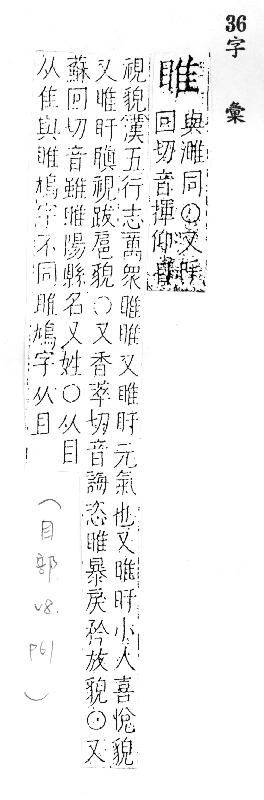 36
字彙
睢 與濉同○又呼
回切音揮仰目
視貌漢五行志萬衆睢睢又睢盱元氣也又睢盱小人喜悅貌
又睢盱瞋視跋扈貌○又香萃切音諱恣睢暴戾矜放貌○又
蘇回切音雖睢陽縣名又姓○从目
从隹與雎鳩字不同雎鳩字从且
(目部
v8.
P61)